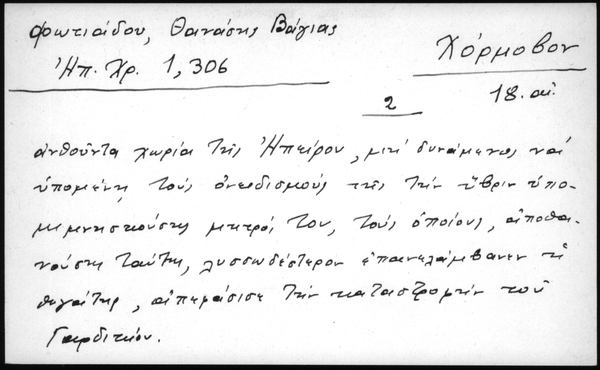 Φωτιάδου, Θανάσης Βάγιας
Ἠπ. Χρ. 1, 306
Χόρμοβον
18. αἰ.
2
ἀνθοῦντα χωρία τῆς Ἠπείρου, μὴ δυνάμενος νὰ
ὑπομένῃ τοὺς ὀνειδισμοὺς τῆς τὴν ὕβριν ὑπο-
μιμνησκούσης μητρός του, τοὺς ὁποίους, ἀποθα-
νούσης ταύτης, λυσσωδέστερον ἐπανελάμβανεν ἡ
θυγάτηρ, ἀπεφάσισε τὴν καταστροφὴν τοῦ
Γαρδικίου.